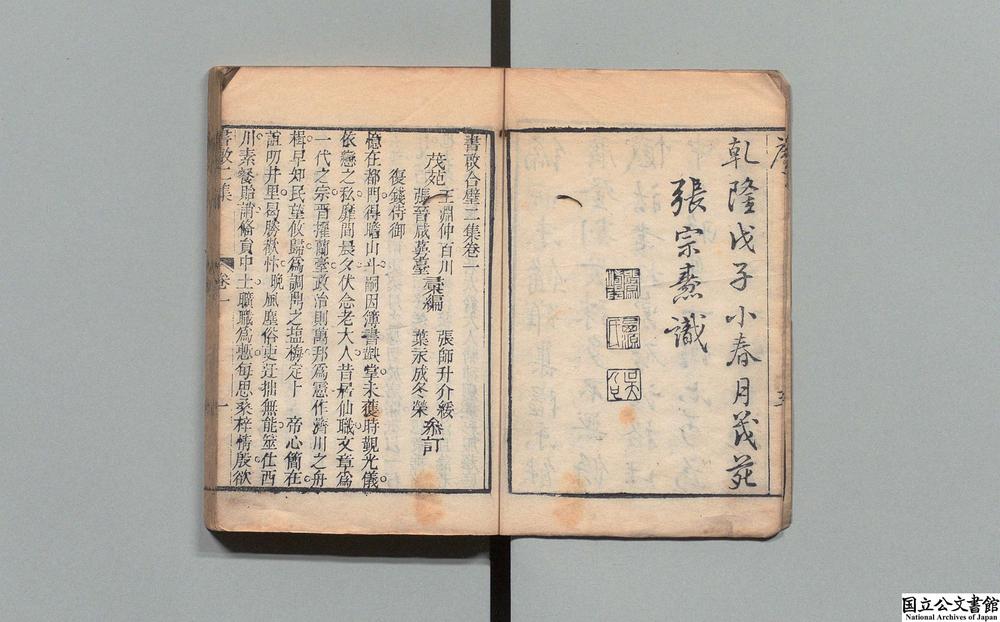 序
乾隆戊子小春月茂苑
張宗燾識
書啟合璧二集卷一
茂苑
王淵仲百川
張晉咸蓂臺
彙編
張師升介綏
葉永成冬榮
參訂
復錢侍御
憶在都門得瞻山斗嗣因簿書鞅掌未獲時覲光儀
依戀之私靡間晨夕伏念老大人昔居仙職文章為
一代之宗晋擢蘭臺政治則萬邦為憲作濟川之舟
楫早知民望攸歸為調鼎之塩梅定卜 帝心簡在
誼叨井里曷勝歡忭晚風塵俗吏迂拙無能筮仕西
川素餐貽誚脩負中士職職為慙每思桑梓情殷欲
書啟二集
卷一
一
国立公文書館
National Archives of Japan